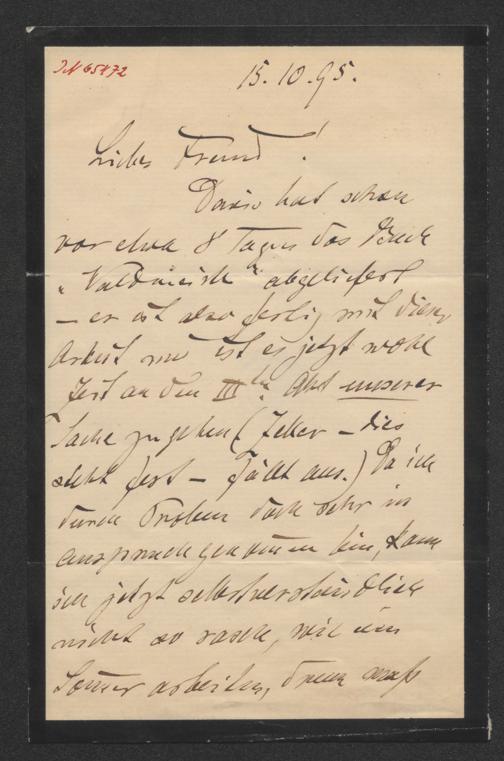 IN 65472
15.10.95.
Liebes Freund!
Davis hat schon
vor etwa 8 Tagen das Buch
„Valdmeister" abgeliefert
– er ist also fertig mit dieser
Arbeit und ist es jetzt wohl
Zeit an den III ten Akt unserer
Sache zu gehen (Zeller – dies
steht fest – fällt aus.) Da ich
durch Proben doch sehr in
anspruch genommen bin, kann
ich jetzt selbstverständlich
nicht so rasch, wie im
Sommer arbeiten, drum muß